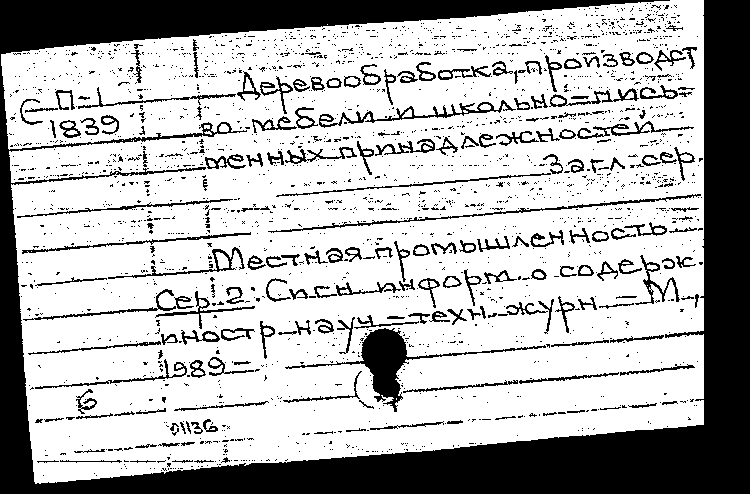 С П-1
1839
Деревообработка, производст
во мебели и школьно-пись-
менных принадлежностей
Загл. сер.
Местная промышленность
Сер. 2: Сигн. информ. о содерж.
иностр. науч.-техн. журн. – М.,
1989 –
6
01136